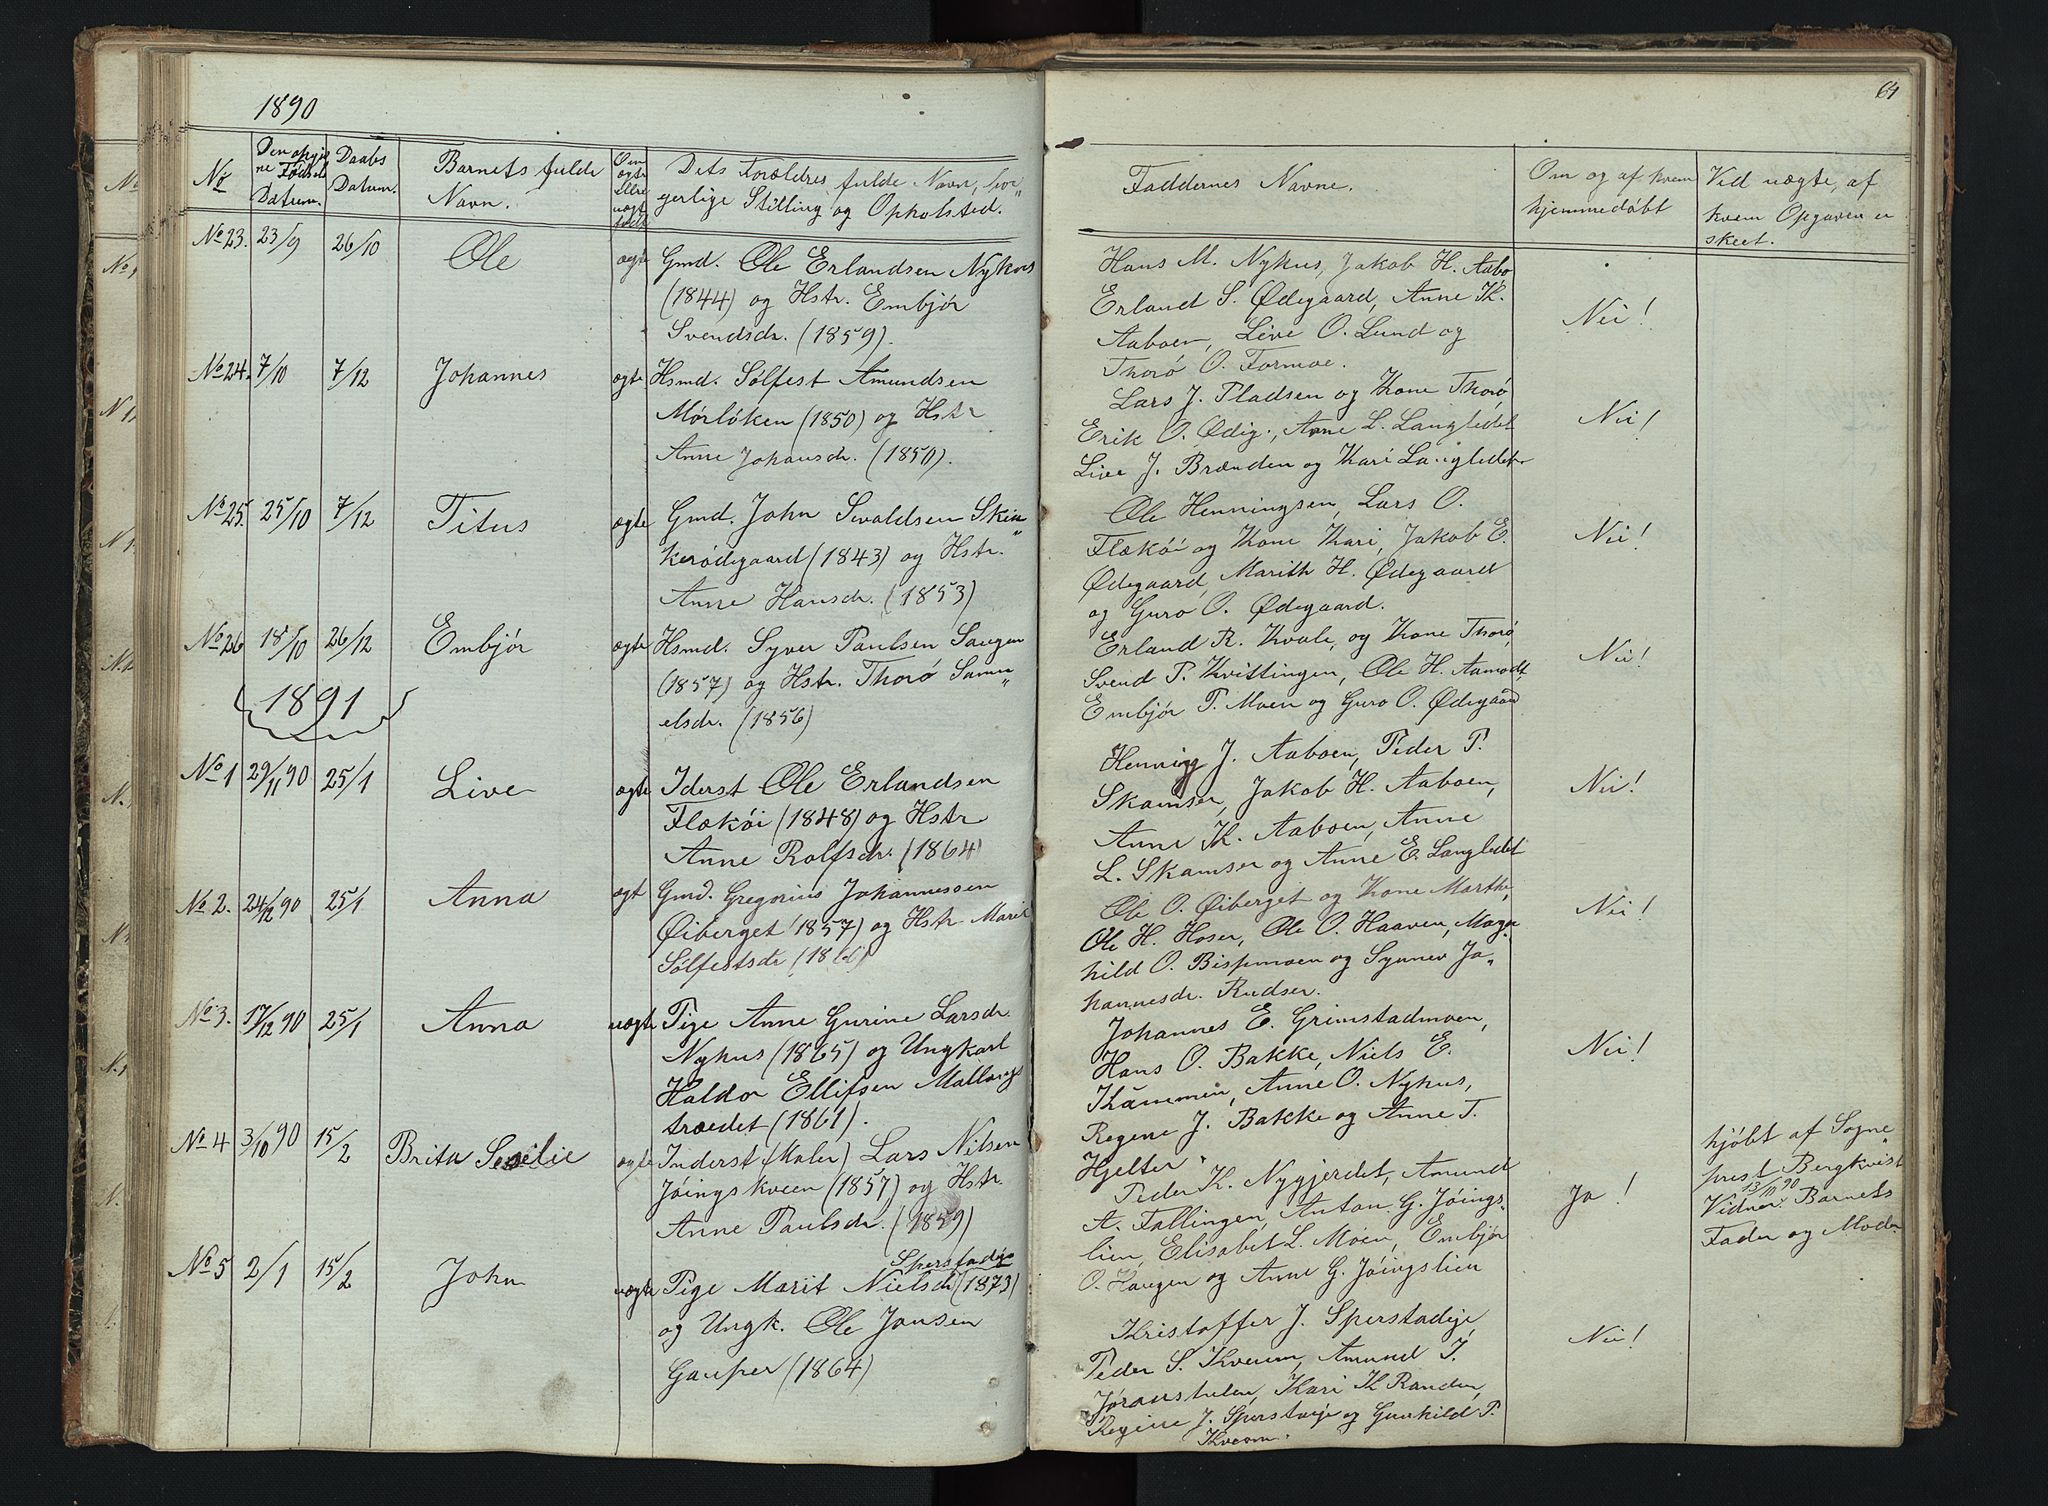 1890
No
Den opgiv
ne Fødsels
Datum.
Daabs
Datum.
Barnets fulde
Navn.
Om
ægte
eller
uægte
født
Dets Forældres fulde Navn, bor„
gerlige Stilling og Opholsted.
No 23. 23/9 26/10 Ole ægte Gmd. Ole Erlandsen Nykus
(1844) og Hstr. Embjør
Svendsdr. (1859).
No 24. 7/10 7/12 Johannes ægte Hsmd. Sølfest Amundsen
Mørløken (1850) og Hstr
Anne Johansdr. (1850).
No 25. 25/10 7/12 Titus ægte Gmd. John Sevaldsen Skin„
kerødegaard (1843) og Hstr.
Anne Hansdr. (1853)
No 26 18/10 26/12 Embjør ægte Hsmd. Syver Paulsen Saugen
(1857) og Hstr. Thorø Samu„
elsdr. (1856)
1891
No 1 29/11 90 25/1 Live ægte Iderst Ole Erlandsen
Flækøi (1848) og Hstr
Anne Rolfsdr. (1864)
No 2. 24/12 90 25/1 Anna ægt Gmd. Gregorius Johannessen
Øiberget (1857) og Hstr Marit
Sølfestsdr (186
No 3. 17/12 90 25/1 Anna uægte Pige Anne Gurine Larsdr
Nykus (1865) og Ungkarl
Haldor Ellifsen Mallangs
trædet (1861).
No 4 3/10 90 15/2 Brita Secilie ægte Inderst (Maler) Lars Nilsen
Jøingskveen (1857) og Hstr.
Anne Paulsdr. (1859)
No 5 2/1 15/2 John uægte Pige Marit Nielsdr Sperstadøie (1873)
og Ungk. Ole Jansen
Gauper (1864)
64
Faddernes Navne.
Om og af hvem
hjemmedøbt
Ved uægte, af
hvem Opgaven er
skeet.
Hans M. Nykus, Jakob H. Aabo
Erland S. Ødegaard, Anne K.
Aaboen, Live O. Lund og
Thorø O. Formoe.
Nei!
Lars J. Pladsen og Kone Thorø,
Erik O. Ødig., Anne L. Langledet
Live J. Brænden og Kari Langledet
Nei!
Ole Henningsen, Lars O.
Flækøi og Kone Kari, Jakob E.
Ødegaard, Marith H. Ødegaard
og Guro O. Ødegaard.
Nei!
Erland R. Kvale, og Kone Thorø,
Svend P. Kvittingen, Ole H. Aamodt
Embjør P. Moen og Guro O. Ødegaard
Nei!
Henning J. Aaboen, Peder P.
Skamser, Jakob H. Aaboen,
Anne K. Aaboen, Anne
L. Skamser og Anne E. Langledet
Nei!
Ole O. Øiberget og Kone Marthe,
Ole H. Hoser, Ole O. Haaven, Magn
hild O. Bispmoen og Synnev Jo„
hannesdr. Rudser.
Nei!
Johannes E. Grimstadmoen,
Hans O. Bakke, Niels E.
Kammen, Anne O. Nykus,
Regine J. Bakke og Anne T.
Hjelter.
Nei!
Peder K. Nygjerdet, Amund
A. Fallingen, Anton G. Jøings„
lien, Elisabet L. Moen, Embjør
O. Haugen og Anne G. Jøingslien
Ja!
hjøbt af Sogne„
prest Bergkvist
13/10 90
Vidner: Barnets
Fader og Moder
Kristoffer J. Sperstadøie,
Peder S. Kveum, Amund I.
Jøranstulen, Kari K Randen,
Regine J. Sperstadøie og Gunhild P.
Kveom.
Nei!